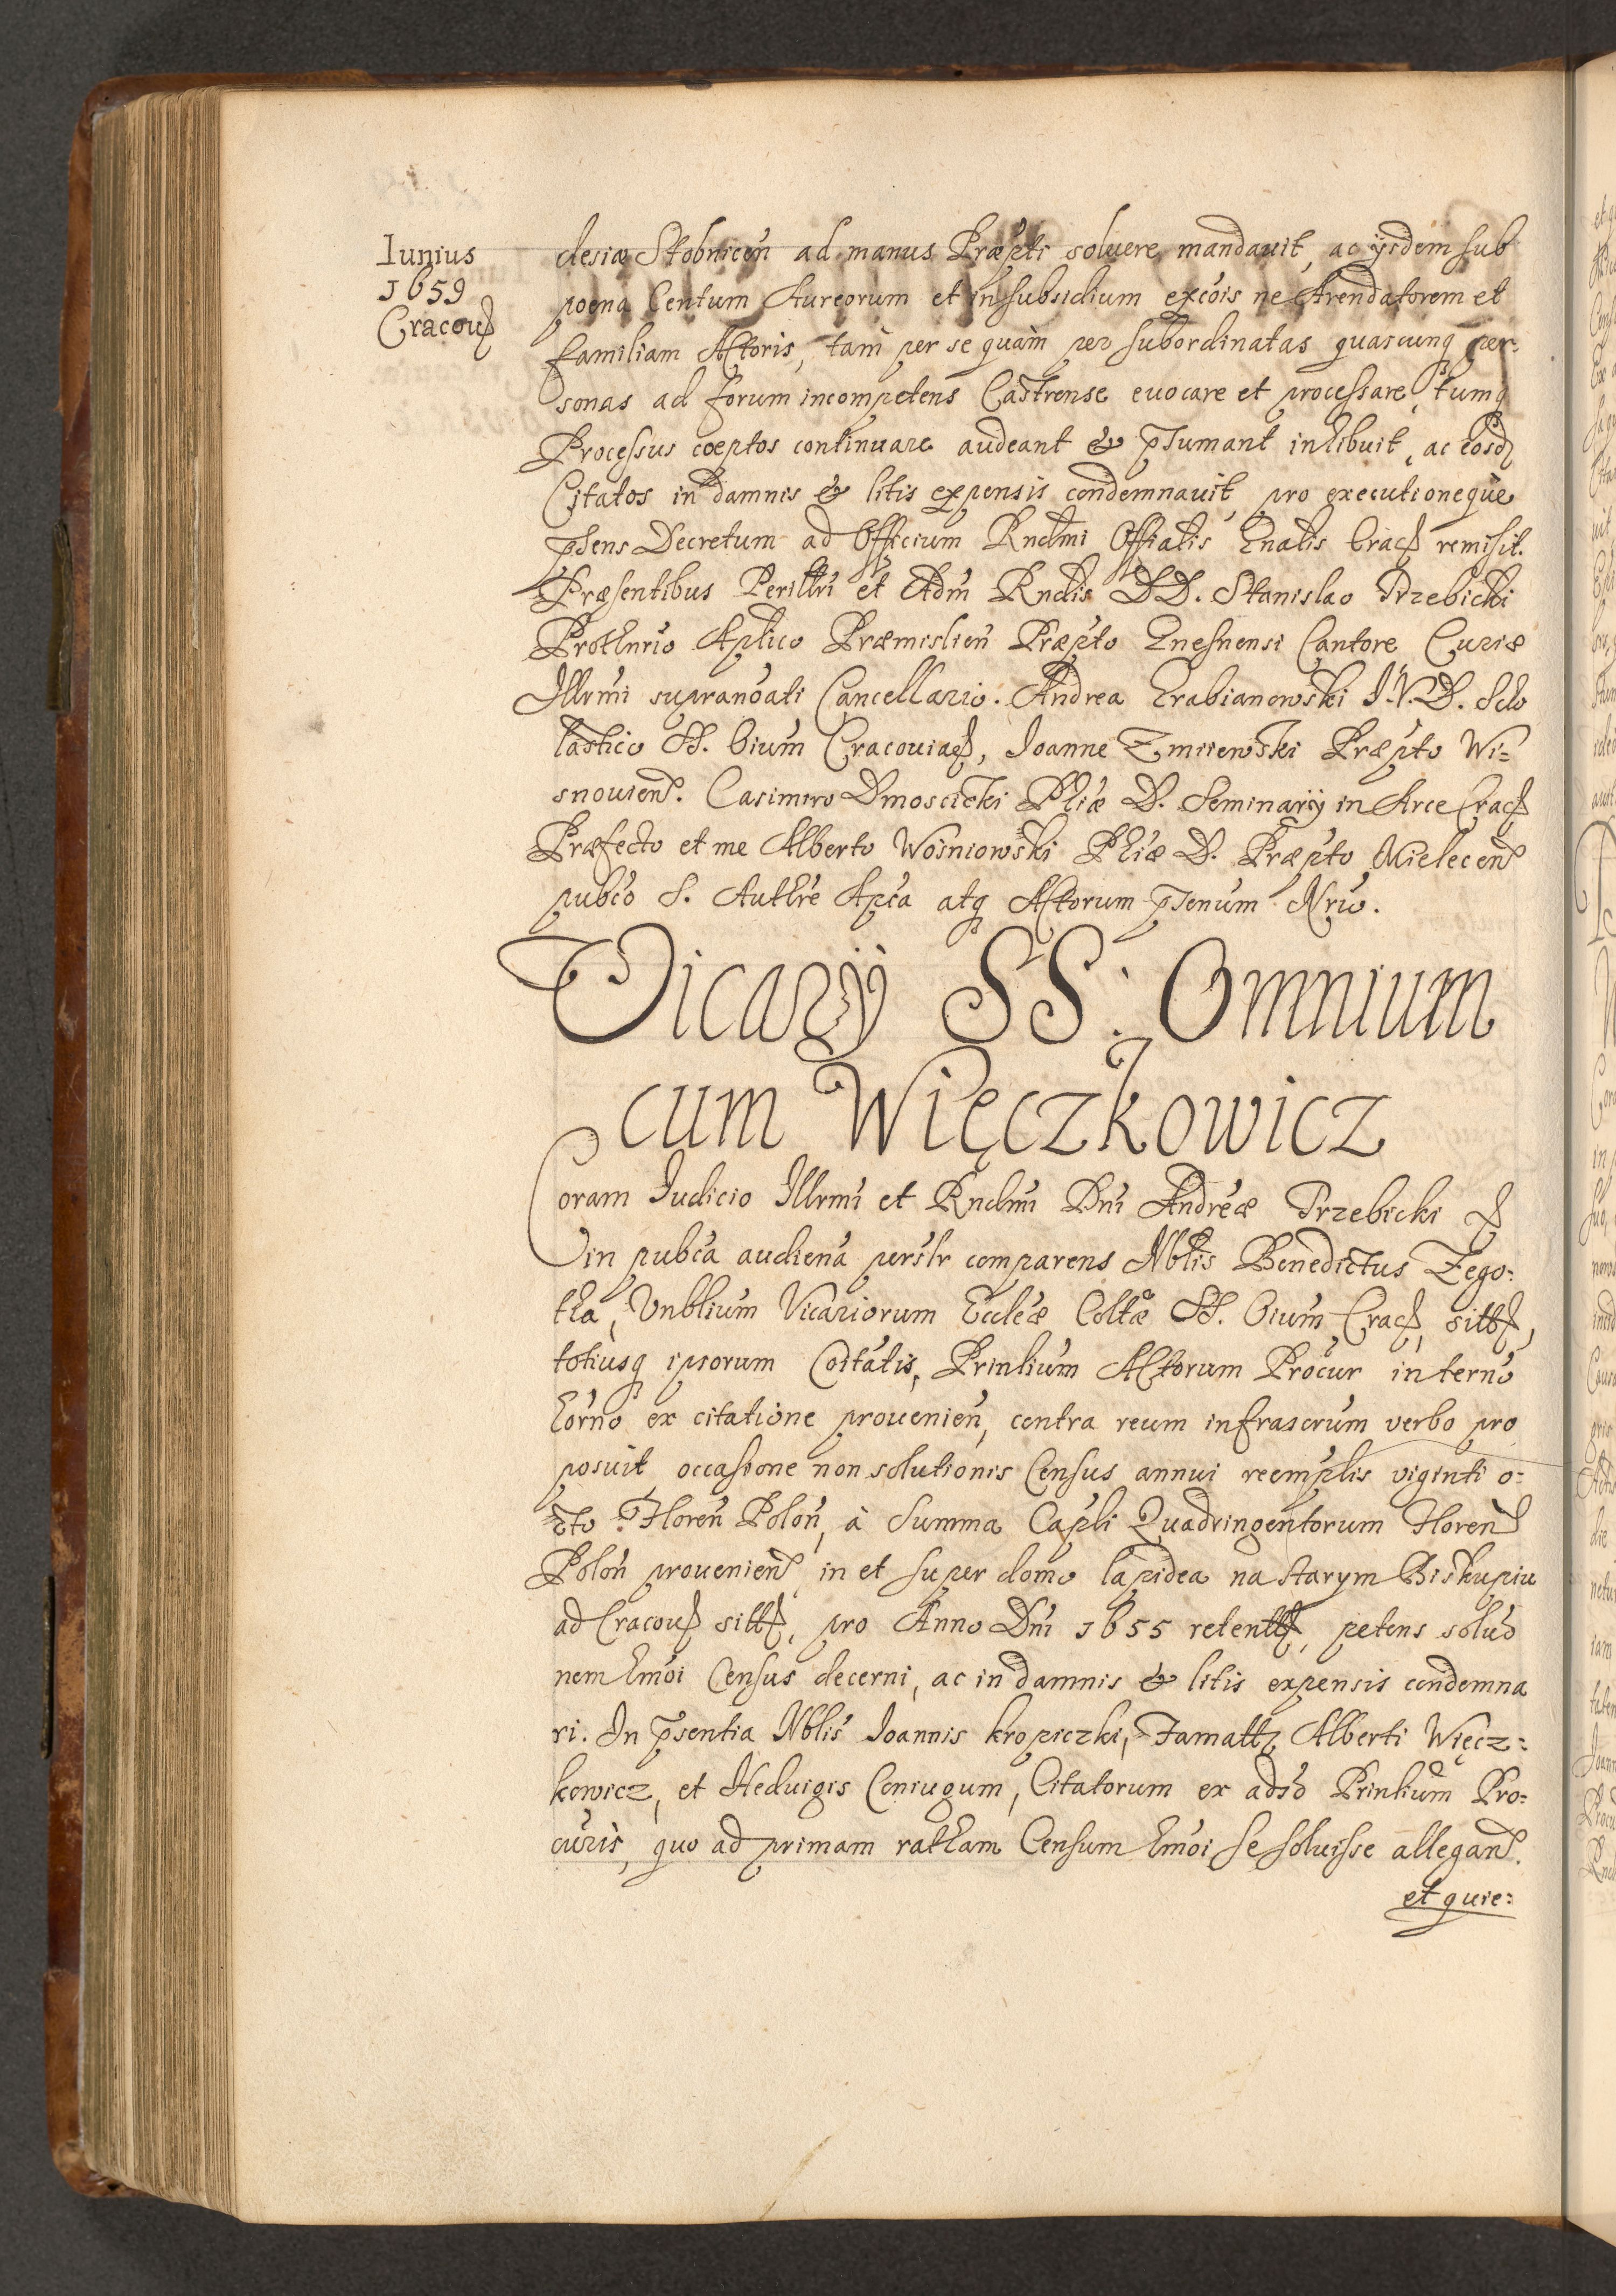 Iunius
1659
Cracou
clesiæ Stobnicen̄ ad manus Præpti soluere mandauit, ac ÿsdem sub
poena Centum Aureorum et in subsidium excōis ne Arendatorem et
familiam Actoris, tam per se quàm per subordinatas quascunq per-
sonas ad forum incompetens Castrense euocare et processare, tumq
Processus coeptos continuare audeant & p̄sumant inhibuit, ac eosd
Citatos in damnis & litis expensis condemnauit, pro executioneque
p̄sens Decretum ad Officium Rndmi Offialis Gnalis Crac remisit.
Præsentibus Perillri et Adm Rndis DD. Stanislao Trzebicki
Prothnrio Aplico Præmislien Præpto Gnesnensi Cantore Curiæ
Illrmi supranoati Cancellario. Andrea Grabianowski I.V.D. Scho
lastico SS. Oium Cracouiae, Ioanne Zmiiewski Præpto Wi=
snouien. Casimiro Dmoscicki Phiæ D. Seminarÿ in Arce Crac
Præfecto et me Alberto Wosniowski Phiæ D. Præpto Mielecen
pubco S. Authre Apca atq Actorum p̄senum Nrio.
Vicarÿ SS: Omnium
cum Więczkowicz
Coram Iudicio Illrmi et Rndmi Dni Andreæ Trzebicki
in pubca audiena perslr comparens Nblis Benedictus Zego-
tha, Vnblium Vicariorum Eccleæ Coltæ SS. Oium Crac, sitt,
totiusq ipsorum Coitatis, Prinlium Actorum Procur in terno
horno ex citatione prouenien, contra reum infrascrum verbo pro
posuit occasione non solutionis Census annui reemplis viginti o-
cto Floren Polon, à Summa Capli Quadringentorum Floren
Polon prouenien in et super domo lapidea na starym Biskupiu
ad Cracou sitt, pro Anno Dni 1655 retent, petens soluo
nem hmoi Census decerni, ac in damnis & litis expensis condemna
ri. In p̄sentia Nblis Ioannis kropiczki, Famatt Alberti Więcz=
kowicz, et Heduigis Coniugum, Citatorum ex adso Prinlium Pro-
curis, quo ad primam ratham Censum hmoi se soluisse allegan.
et quie: